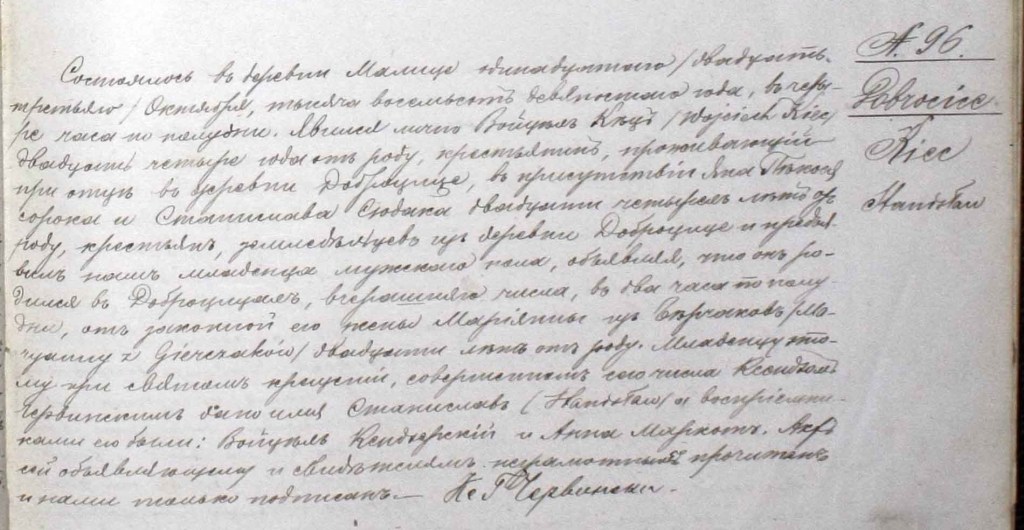 № 96.
Dobrocice.
Kiec
Stanisław
Состоялось въ деревни Малице одинадцатаго / двадцать
третьяго / Октября, тысяча восемьсотъ девяностаго года, въ четы-
ре часа по полудни. Явился лично Войцѣхъ Кѣцъ / Wojciech Kiec /
двадцать четыре года отъ роду, крестьянинъ, проживающій
при отцѣ въ деревни Доброцице, въ присутствіи Яна
сорока и Станислава Сюдака двадцати четырехъ лѣтъ отъ
роду, крестьянъ, земледѣльцевъ изъ деревни Доброцице и предъя-
вилъ намъ младенца мужскаго пола, объявляя, что онъ ро-
дился въ Доброцицахъ, вчерашняго числа, въ два часа по полу-
дни, отъ законной его жены Маріянны изъ Гѣрчаковъ / Ma-
ryanny z Gierczaków / двадцати лѣтъ отъ роду. Младенцу это-
му при святомъ крещеніи, совершенномъ сего числа Ксендзомъ
Червинскимъ дано имя Станиславъ (Stanisław) а воспріемни-
ками его были: Войцѣхъ Ксендзерскій и Анна Маркотъ. Актъ
сей объявляющему и свидѣтелямъ неграмотнымъ прочитанъ
и нами только подписанъ. — Червински.